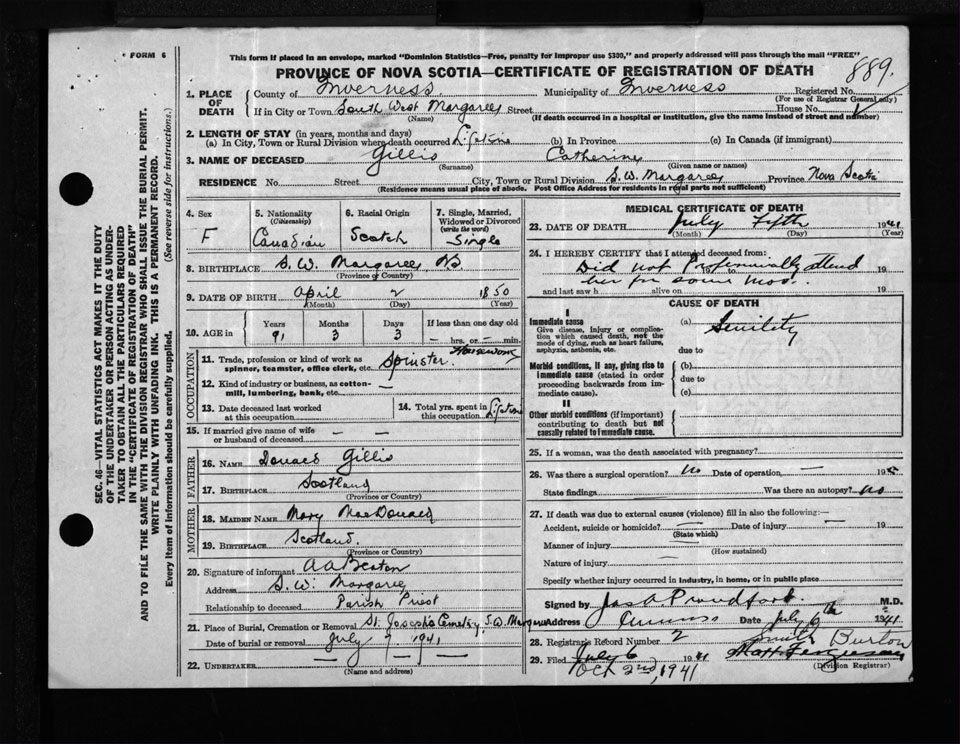 FORM 6
This form if placed in an envelope, marked "Dominion Statistics—Free, penalty for improper use $300," and properly addressed will pass through the mail "FREE"
PROVINCE OF NOVA SCOTIA—CERTIFICATE OF REGISTRATION OF DEATH
889.
SEC. 46—VITAL STATISTICS ACT MAKES IT THE DUTY
OF THE UNDERTAKER OR PERSON ACTING AS UNDER-
TAKER TO OBTAIN ALL THE PARTICULARS REQUIRED
IN THE "CERTIFICATE OF REGISTRATION OF DEATH"
AND TO FILE THE SAME WITH THE DIVISION REGISTRAR WHO SHALL ISSUE THE BURIAL PERMIT.
WRITE PLAINLY WITH UNFADING INK. THIS IS A PERMANENT RECORD.
Every item of information should be carefully supplied. (See reverse side for instructions.)
1. PLACE OF DEATH
County of Inverness Municipality of Inverness Registered No.
(For use of Registrar General only)
If in City or Town South West Margaree Street House No.
(Name) (If death occurred in a hospital or institution, give the name instead of street and number)
2. LENGTH OF STAY (in years, months and days)
(a) In City, Town or Rural Division where death occurred Lifetime (b) In Province (c) In Canada (if immigrant)
3. NAME OF DECEASED Gillis Catherine
(Surname) (Given name or names)
RESIDENCE No. Street City, Town or Rural Division S. W. Margaree Province Nova Scotia
(Residence means usual place of abode. Post Office Address for residents in rural parts not sufficient)
4. Sex F
5. Nationality (Citizenship) Canadian
6. Racial Origin Scotch
7. Single, Married, Widowed or Divorced (write the word) Single
8. BIRTHPLACE S. W. Margaree NS
(Province or Country)
9. DATE OF BIRTH April 2 1850
(Month) (Day) (Year)
10. AGE in Years Months Days If less than one day old
91 3 3 — hrs. or — min.
OCCUPATION
11. Trade, profession or kind of work as spinner, teamster, office clerk, etc. Spinster.
12. Kind of industry or business, as cotton-mill, lumbering, bank, etc. —
13. Date deceased last worked at this occupation
14. Total yrs. spent in this occupation Lifetime
15. If married give name of wife or husband of deceased — —
FATHER
16. NAME Donald Gillis
17. BIRTHPLACE Scotland
(Province or Country)
MOTHER
18. MAIDEN NAME Mary MacDonald
19. BIRTHPLACE Scotland.
(Province or Country)
20. Signature of informant A A Beaton
Address S. W. Margaree
Relationship to deceased Parish Priest
21. Place of Burial, Cremation or Removal St. Joseph's Cemetery, S. W. Margaree
Date of burial or removal July 7 1941
22. UNDERTAKER — — —
(Name and address)
MEDICAL CERTIFICATE OF DEATH
23. DATE OF DEATH July Fifth 1941
(Month) (Day) (Year)
24. I HEREBY CERTIFY that I attended deceased from:
Did not Professionally attend 19
her for some mos.
and last saw h alive on 19
CAUSE OF DEATH
I
Immediate cause (a) Senility
Give disease, injury or complication which caused death, not the mode of dying, such as heart failure, asphyxia, asthenia, etc. due to
Morbid conditions, if any, giving rise to immediate cause (stated in order proceeding backwards from immediate cause). (b)
due to
(c)
II
Other morbid conditions (if important) contributing to death but not causally related to immediate cause.
25. If a woman, was the death associated with pregnancy?
26. Was there a surgical operation? No Date of operation — 19
State findings Was there an autopsy? No
27. If death was due to external causes (violence) fill in also the following:—
Accident, suicide or homicide? — Date of injury — 19
(State which)
Manner of injury
(How sustained)
Nature of injury
Specify whether injury occurred in industry, in home, or in public place
Signed by Jas. A. Proudfoot. M.D.
Address Inverness Date July 6th 1941
28. Registrar's Record Number 2
29. Filed July 6 1941
Oct 2nd, 1941
Burton
(Division Registrar)